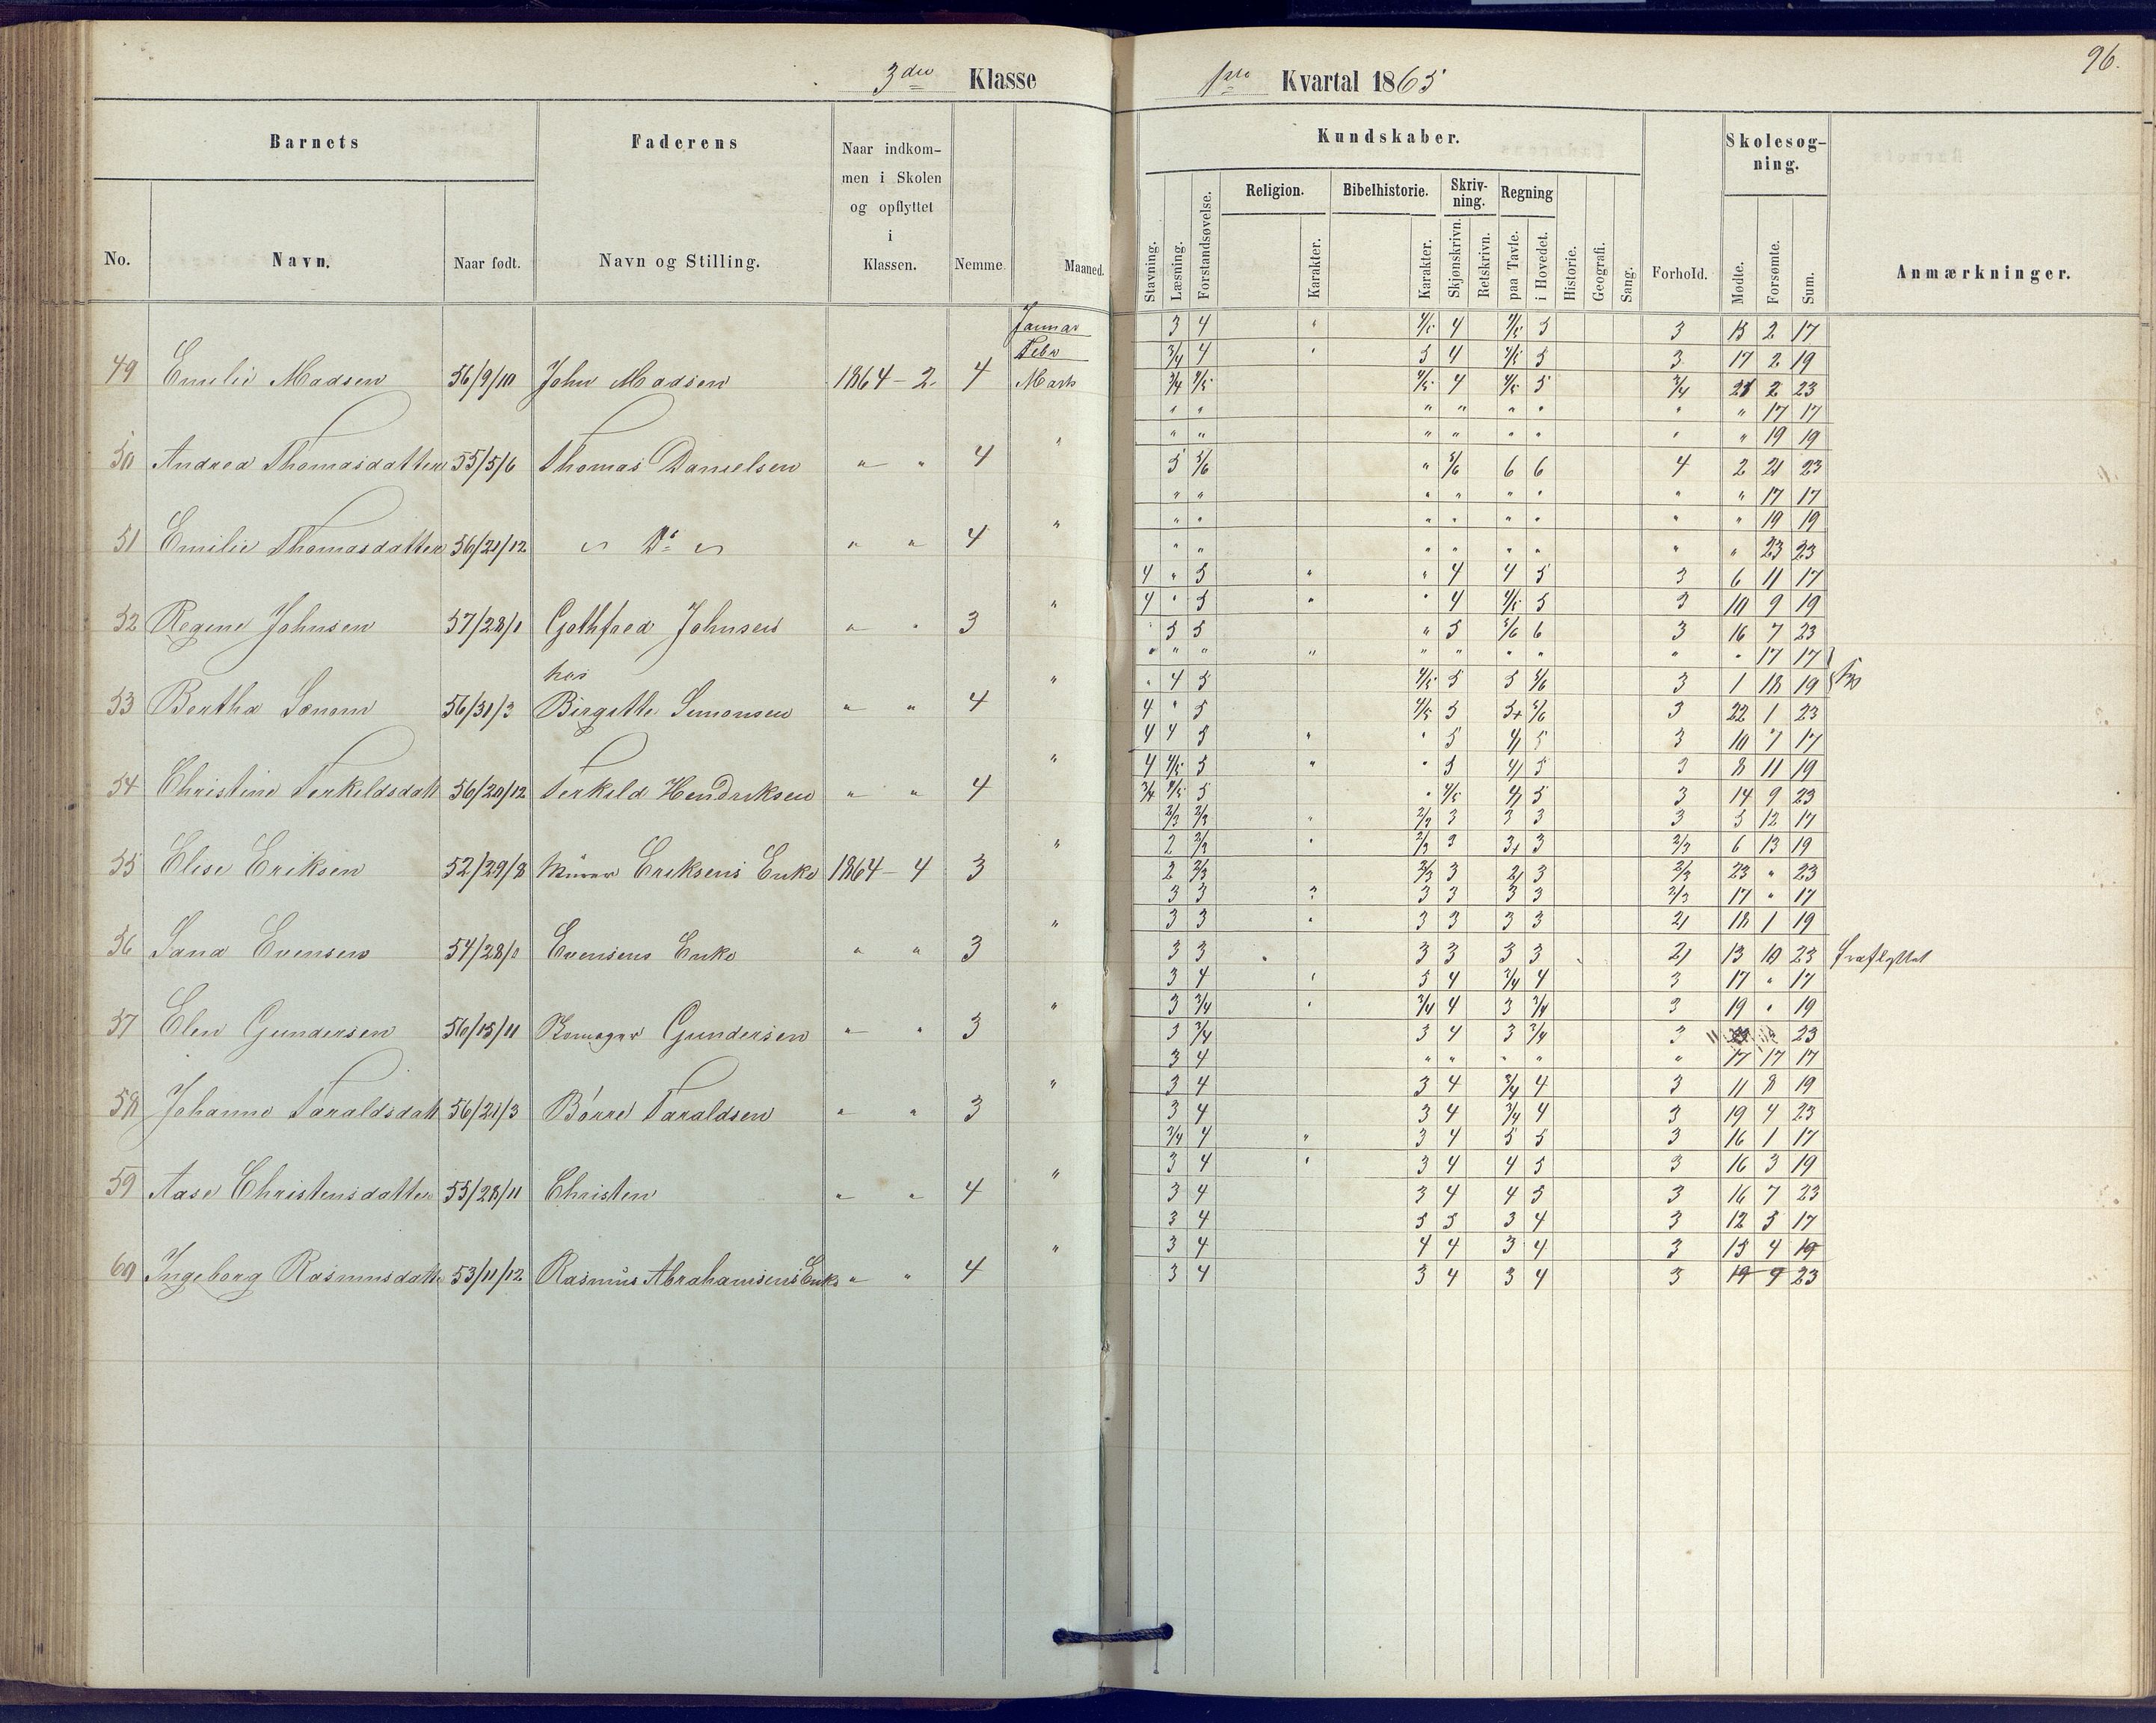 96.
3die Klasse
1ste Kvartal 1865
Barnets
No. Navn. Naar født.
Faderens
Navn og Stilling.
Naar indkom-
men i Skolen
og opflyttet
i
Klassen.
Nemme. Maaned.
Kundskaber.
Stavning. Læsning. Forstandsøvelse.
Religion. Karakter.
Bibelhistorie. Karakter.
Skriv-
ning.
Skjønskrivn. Retskrivn.
Regning
paa Tavle. i Hovedet.
Historie. Geografi. Sang.
Forhold.
Skolesøg-
ning.
Mødte. Forsømte. Sum.
Anmærkninger.
Januar 3 4 " 4/5 4 4/5 5 3 15 2 17
Febr 3/4 4 " 5 4 4/5 5 3 17 2 19
49 Emilie Madsen 56/9/10 John Madsen 1864 - 2. 4 Marts 3/4 4/5 4/5 4 4/5 5 3/4 21 2 23
" " " " " " " " 17 17
" " " " " " " " 19 19
50 Andrea Thomasdatter 55/5/6 Thomas Danielsen " " 4 " 5 5/6 " 5/6 6 6 4 2 21 23
" " " " " " " " 17 17
" " " " " " " " 19 19
51 Emilie Thomasdatter 56/21/12 Do " " 4 " " " " " " " " " 23 23
4 " 5 " " 4 4 5 3 6 11 17
4 " 5 " " 4 4/5 5 3 10 9 19
52 Regine Johnsen 57/28/1 Gothfred Johnsen " " 3 " " 5 5 " 5 5/6 6 3 16 7 23
" " " " " " " " " " 17 17
hos
" 4 5 4/5 5 5 5/6 3 1 18 19
53 Bertha 56/31/3 Birgitte Simonsen " " 4 " 4 " 5 4/5 5 5+ 5/6 3 22 1 23
4 4 5 " " 5 4 5 3 10 7 17
4 4/5 5 " " 5 4 5 3 8 11 19
54 Christine Terkeldsdatt 56/20/12 Terkeld Hendriksen " " 4 " 3/4 4/5 5 " 4/5 4 5 3 14 9 23
2/3 2/3 " 2/3 3 3 3 3 5 12 17
2 2/3 " 2/3 3 3+ 3 2/3 6 13 19
55 Elise Eriksen 52/29/8 Murer Eriksens Enke 1864 - 4 3 " 2 2/3 2/3 3 2 3 2/3 23 " 23
3 3 3 3 3 3 2/3 17 " 17
3 3 " 3 3 3 3 2 18 1 19
56 Evensen Evensens Enke " " 3 " 3 3 3 3 3 3 2 13 10 23 fraflyttet
3 4 " 5 4 3/4 4 3 17 " 17
3 3/4 " 3/4 4 3 3/4 3 19 " 19
57 Elen Gundersen 56/15/11 Gundersen " " 3 " 3 3/4 3 4 3 3/4 3 23
3 4 " " " " " 17 17 17
3 4 3 4 3/4 4 3 11 8 19
58 Johanne Taraldsdatt 56/21/3 Børre Taraldsen " " 3 " 3 4 3 4 3/4 4 3 19 4 23
3/4 4 " 3 4 5 5 3 16 1 17
3 4 " 3 4 4 5 3 16 3 19
59 Aase Christensdatter 55/28/11 Christen " " 4 " 3 4 3 4 4 5 3 16 7 23
3 4 5 5 3 4 3 12 5 17
3 4 4 4 3 4 3 15 4 19
60 Ingeborg Rasmusdatte 53/11/12 Rasmus Abrahamsens Enke " " 4 " 3 4 3 4 3 4 3 19 9 23